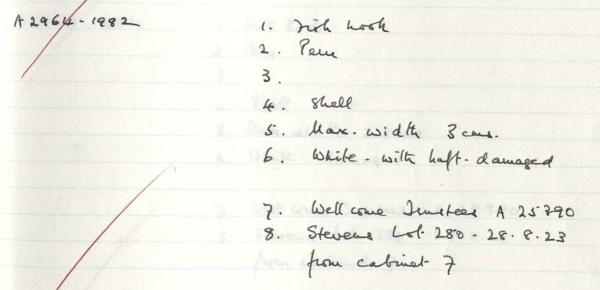 A2964-1982 1. Fish hook
2. Peru
3.
4. Shell
5. Max. width 3 cms.
6. White - with haft - damaged
7. Wellcome Trustees A 25790
8. Stevens Lot 280 - 28.8.23
from cabinet 7